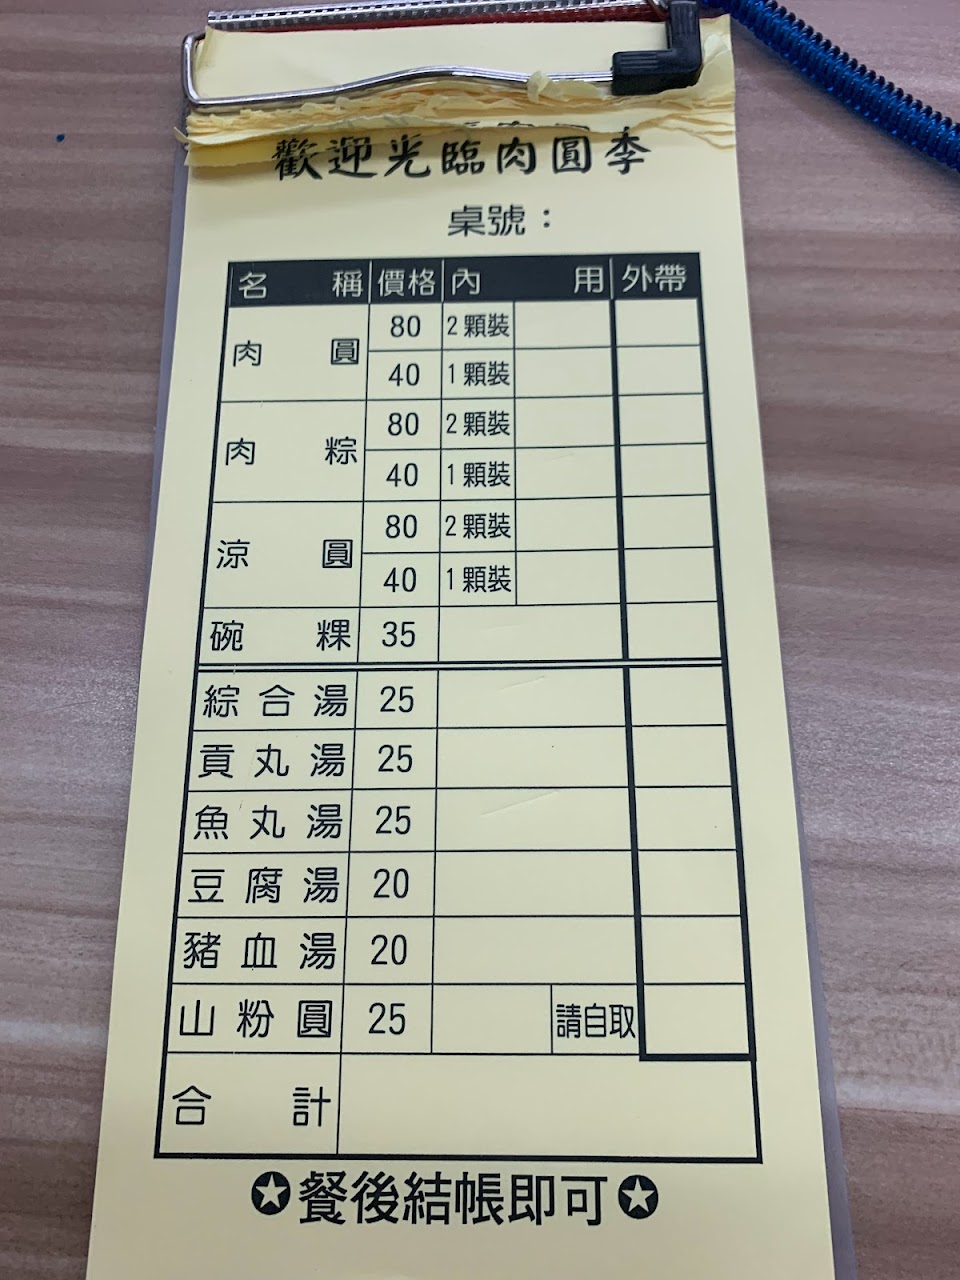 歡迎光臨肉圓李
桌號：
名稱 價格 內用 外帶
肉圓 80 2顆裝
40 1顆裝
肉粽 80 2顆裝
40 1顆裝
涼圓 80 2顆裝
40 1顆裝
碗粿 35
綜合湯 25
貢丸湯 25
魚丸湯 25
豆腐湯 20
豬血湯 20
山粉圓 25 請自取
合計
✪餐後結帳即可✪